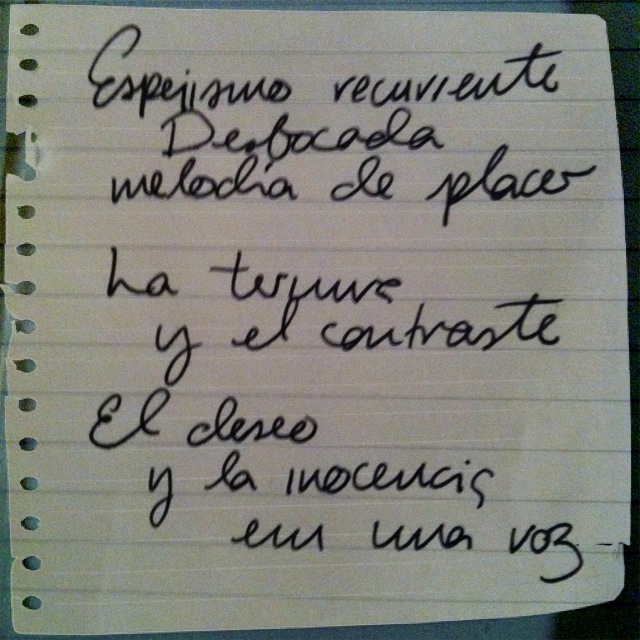 Espejismo recurriente
Desbocada
melodía de placer
La ternura
y el contraste
El deseo
y la inocencia
en una voz